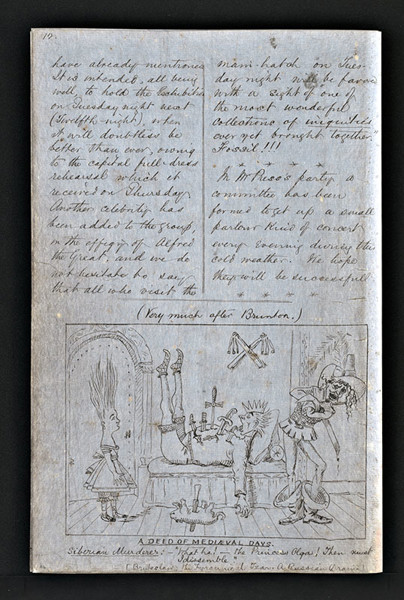 12.
have already mentioned
It is intended, all being
well, to hold the Exhibition
on Tuesday night next
(Twelfth night), when
it will doubtless be
better than ever, owing
to the capital full-dress
rehearsal which it
received on Thursday
Another celebrity has
been added to the group,
in the effigy of Alfred
the Great, and we do
not hesitate to say
that all who visit the
on Tues-
day night will be favored
with a sight of one of
the most wonderful
collections of iniquities
ever yet brought together.
Fossil!!!
* * * * *
party a
committee has been
formed to get up a small
parlour kind of concert
every evening during the
cold weather. We hope
they will be successful
* * * *
(Very much after Brunton.)
A DEED OF MEDIÆVAL DAYS.
Siberian Murderer:- "What ha! - the Princess Olga! Then must
I dissemble"